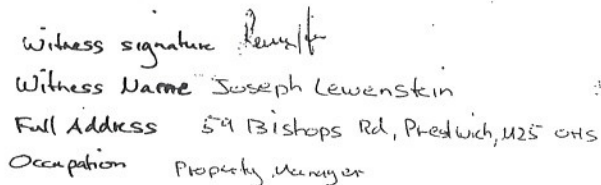 Witness signature
Witness Name Joseph Lewenstein
Full Address 59 Bishops Rd, Prestwich, M25 0HS
Occupation Property Manager